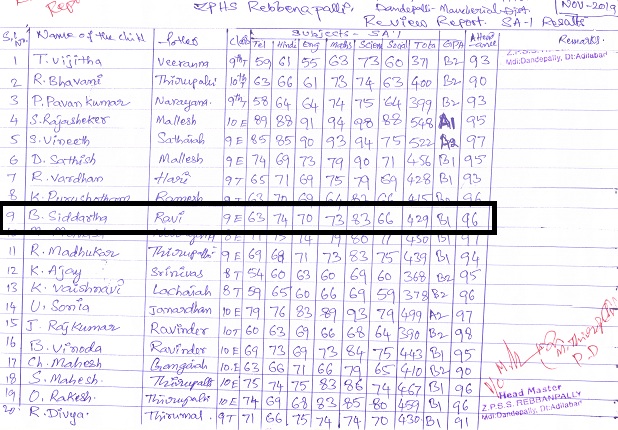 Report
ZPHS Rebbenapalli, Dandepalli - Mancherial - Dist. NOV-2019
Review Report. SA-1 Results
S.No Name of the child Father Class Subjects - SA-1 Attendance Remarks.
Tel Hindi Eng Maths Scien Social Total GPA
Z.P.S.S. REBBANPALLY
Mdl:Dandepally, Dt:Adilabad
1 T. Vijitha Veeranna 9th T 59 61 55 63 73 60 371 B2 93
2 R. Bhavani Thirupathi 10th T 63 66 61 73 74 63 400 B2 90
3 P. Pavan kumar Narayana 9th T 58 64 64 74 75 64 399 B2 93
4 S. Rajasheker Mallesh 10 E 89 88 91 94 98 88 548 A1 95
5 S. Vineeth Sathaiah 9 E 85 85 90 93 94 75 522 A2 97
6 D. Sathish Mallesh 9 E 74 69 73 79 90 71 456 B1 95
7 R. Vardhan Hari 9T 65 71 69 75 79 69 428 B1 93
8 K. Purushotham Ramesh 415 96
9 B. Siddartha Ravi 9 E 63 74 70 73 83 66 429 B1 96
14 80 450 B1 97
11 R. Madhukar Thirupathi 9 E 69 68 71 73 83 75 439 B1 94
12 K. Ajay Srinivas 8T 54 60 63 60 69 60 368 B2 95
13 K. Vaishnavi Lachaiah 8T 59 65 60 66 69 59 378 B2 96
14 U. Sonia Janardhan 10 E 79 76 83 89 93 79 499 A2 97
15 J. Raj Kumar Ravinder 10T 60 63 69 66 68 64 390 B2 98
16 B. Vinoda Ravinder 10 E 73 69 73 84 75 443 B1 95
17 Ch. Mahesh Gangaiah 10 E 63 66 71 66 79 65 410 B2 90
18 S. Mahesh. Thirupathi 10 E 75 74 75 83 86 74 467 B1 96
19 O. Rakesh. Thirupathi 10 E 74 69 68 83 85 80 459 B1 96
20. R. Divya. Thirumal 9T 71 66 75 74 74 70 430 B1 91
P.D
Head Master
Z.P.S.S. REBBANPALLY
Mdl:Dandepally, Dt:Adilabad